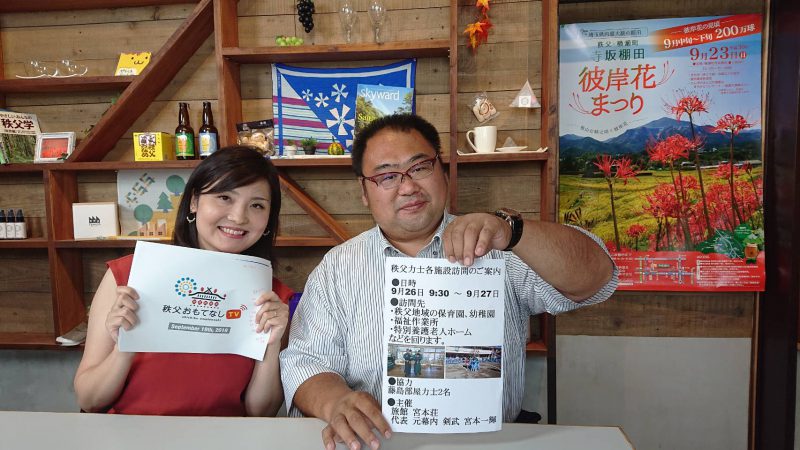 skyward
San
秩父学
秩父おもてなしTV
September 18th, 2018
秩父力士各施設訪問のご案内
●日時
9月26日 9:30 ～ 9月27日
●訪問先
・秩父地域の保育園、幼稚園
・福祉作業所
・特別養護老人ホーム
などを回ります。
●協力
藤島部屋力士2名
●主催
旅館 宮本荘
代表 元幕内 剣武 宮本一輝
彼岸花の見頃
9月中旬～下旬 200万球
秩父・横瀬町
寺坂棚田
9月23日
彼岸花
まつり